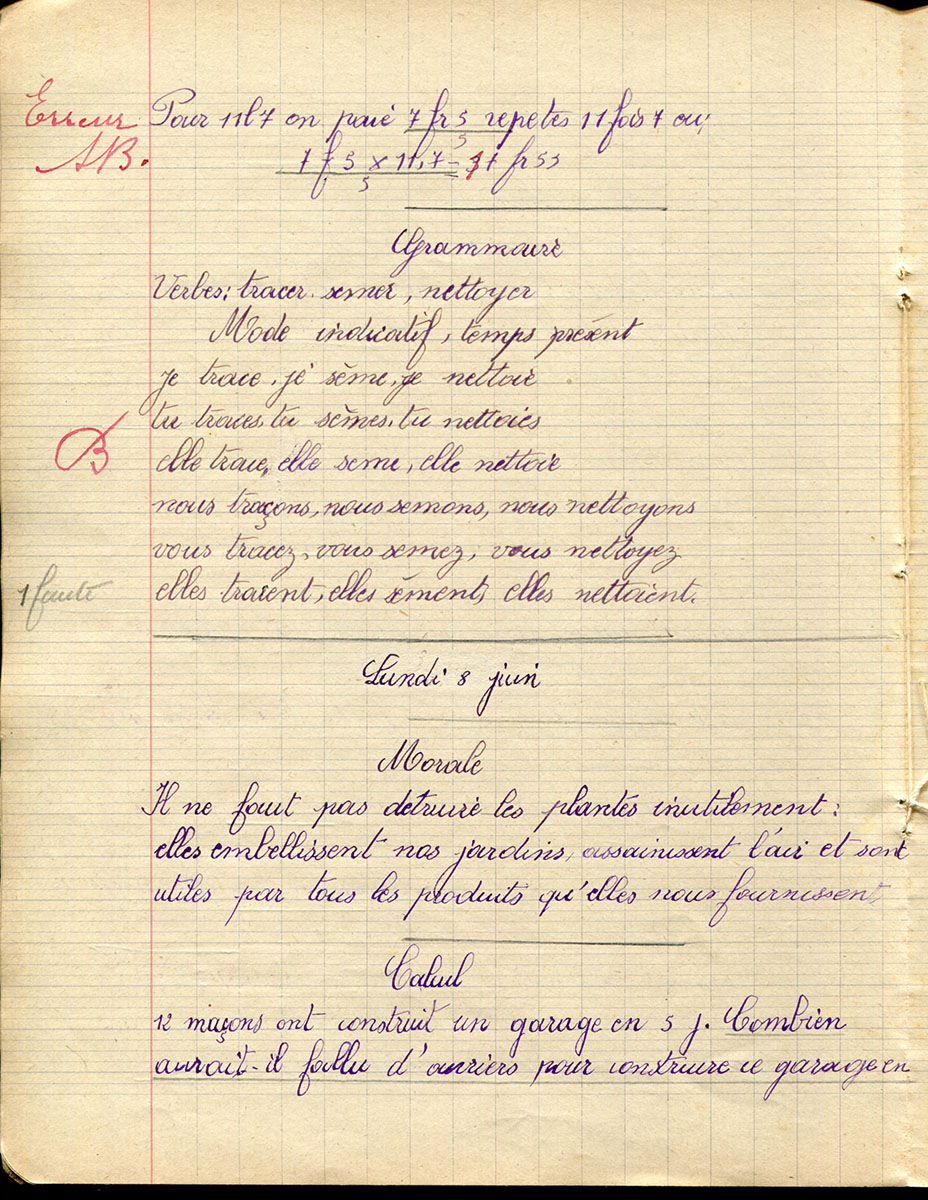 Erreur
AB.
Pour 11l7 on paie 7 fr 5 repetes 11 fois 7 ou;
7 f 5 x 11,7 = 87 fr 55
Grammaire
Verbes: tracer. semer, nettoyer
Mode indicatif, temps présent
je trace, je sème, je nettoie
tu traces, tu sèmes, tu nettoies
B
elle trace, elle seme, elle nettoie
nous traçons, nous semons, nous nettoyons
vous tracez, vous semez, vous nettoyez
1 faute
elles tracent, elles sèment, elles nettoient.
Lundi 8 juin
Morale
Il ne faut pas detruire les plantes inutilement:
elles embellissent nos jardins, assainissent l'air et sont
utiles par tous les produits qu'elles nous fournissent.
Calcul
12 maçons ont construit un garage en 5 j. Combien
aurait-il fallu d'ouvriers pour construire ce garage en